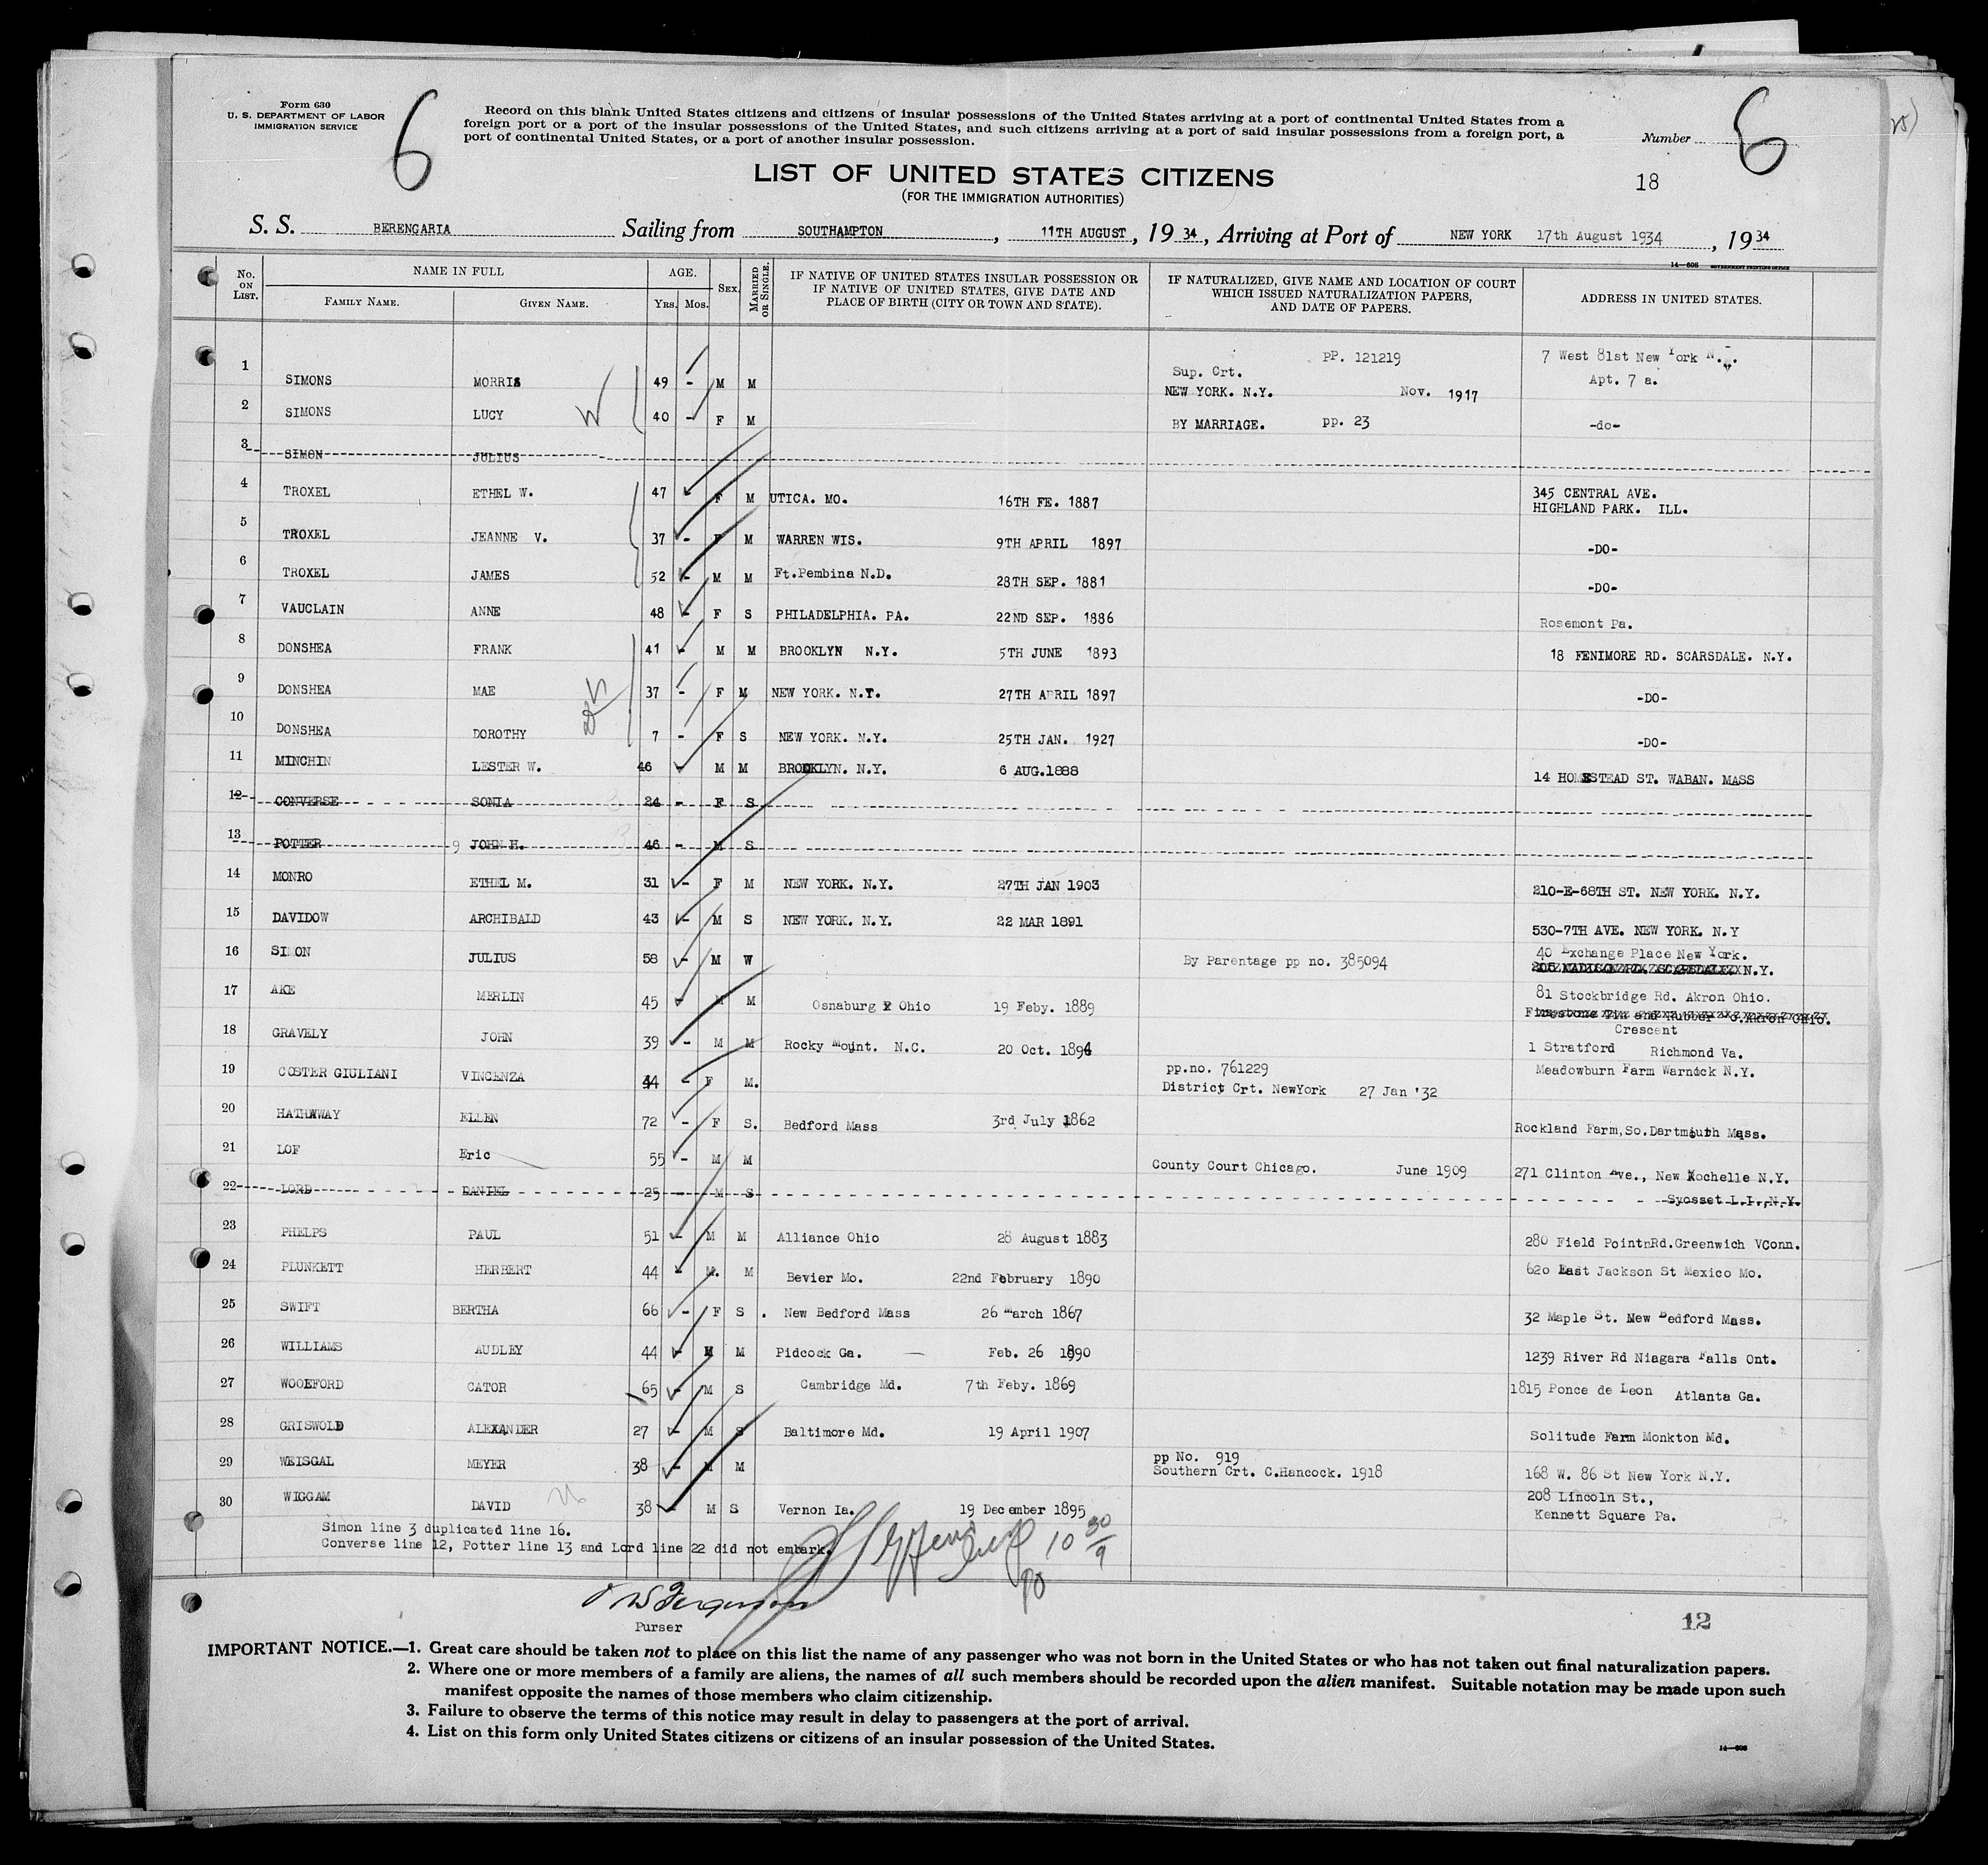 Form 630
U. S. DEPARTMENT OF LABOR
IMMIGRATION SERVICE
6
Record on this blank United States citizens and citizens of insular possessions of the United States arriving at a port of continental United States from a
foreign port or a port of the insular possessions of the United States, and such citizens arriving at a port of said insular possessions from a foreign port, a
port of continental United States, or a port of another insular possession.
Number 6
18
LIST OF UNITED STATES CITIZENS
(FOR THE IMMIGRATION AUTHORITIES)
S. S. BERENGARIA Sailing from SOUTHAMPTON, 11TH AUGUST, 1934, Arriving at Port of NEW YORK 17th August 1934, 1934
14—608 GOVERNMENT PRINTING OFFICE
No. ON LIST. NAME IN FULL FAMILY NAME. GIVEN NAME. AGE. Yrs. Mos. SEX. MARRIED OR SINGLE. IF NATIVE OF UNITED STATES INSULAR POSSESSION OR IF NATIVE OF UNITED STATES, GIVE DATE AND PLACE OF BIRTH (CITY OR TOWN AND STATE). IF NATURALIZED, GIVE NAME AND LOCATION OF COURT WHICH ISSUED NATURALIZATION PAPERS, AND DATE OF PAPERS. ADDRESS IN UNITED STATES.
1 SIMONS MORRIS 49 - M M Sup. Crt. PP. 121219 NEW YORK. N.Y. Nov. 1917 7 West 81st New York N.Y. Apt. 7 a.
2 SIMONS LUCY 40 - F M BY MARRIAGE. pp. 23 -do-
3 SIMON JULIUS
4 TROXEL ETHEL W. 47 - F M UTICA. MO. 16TH FE. 1887 345 CENTRAL AVE. HIGHLAND PARK. ILL.
5 TROXEL JEANNE V. 37 - F M WARREN WIS. 9TH APRIL 1897 -DO-
6 TROXEL JAMES 52 - M M Ft.Pembina N.D. 28TH SEP. 1881 -DO-
7 VAUCLAIN ANNE 48 - F S PHILADELPHIA. PA. 22ND SEP. 1886 Rosemont Pa.
8 DONSHEA FRANK 41 - M M BROOKLYN N.Y. 5TH JUNE 1893 18 FENIMORE RD. SCARSDALE. N.Y.
9 DONSHEA MAE 37 - F M NEW YORK. N.Y. 27TH APRIL 1897 -DO-
10 DONSHEA DOROTHY 7 - F S NEW YORK. N.Y. 25TH JAN. 1927 -DO-
11 MINCHIN LESTER W. 46 - M M BROOKLYN. N.Y. 6 AUG.1888 14 HOMESTEAD ST. WABAN. MASS
12 CONVERSE SONIA 24 - F S
13 POTTER 9 JOHN H. 46 - M S
14 MONRO ETHEL M. 31 - F M NEW YORK. N.Y. 27TH JAN 1903 210-E-68TH ST. NEW YORK. N.Y.
15 DAVIDOW ARCHIBALD 43 - M S NEW YORK. N.Y. 22 MAR 1891 530-7TH AVE. NEW YORK. N.Y
16 SIMON JULIUS 58 - M W By Parentage pp no. 385094 40 Exchange Place New York. N.Y.
17 AKE MERLIN 45 - M M Osnaburg Ohio 19 Feby. 1889 81 Stockbridge Rd. Akron Ohio.
18 GRAVELY JOHN 39 - M M Rocky Mount. N.C. 20 Oct. 1894 1 Stratford Crescent Richmond Va.
19 COSTER GIULIANI VINCENZA 44 - F M. pp.no. 761229 District Crt. NewYork 27 Jan '32 Meadowburn Farm Warnick N.Y.
20 HATHAWAY ELLEN 72 - F S. Bedford Mass 3rd July 1862 Rockland Farm,So.Dartmouth Mass.
21 LOF Eric 55 - M M County Court Chicago. June 1909 271 Clinton Ave., New Rochelle N.Y.
22 LORD DANIEL 25 - M S Syosset L.I.,N.Y.
23 PHELPS PAUL 51 - M M Alliance Ohio 28 August 1883 280 Field PointnRd.Greenwich VConn.
24 PLUNKETT HERBERT 44 - M. M Bevier Mo. 22nd February 1890 620 East Jackson St Mexico Mo.
25 SWIFT BERTHA 66 - F S . New Bedford Mass 26 March 1867 32 Maple St. New Bedford Mass.
26 WILLIAMS AUDLEY 44 - M M Pidcock Ga. Feb. 26 1890 1239 River Rd Niagara Falls Ont.
27 WOOLFORD CATOR 65 - M S Cambridge Md. 7th Feby. 1869 1815 Ponce de Leon Atlanta Ga.
28 GRISWOLD ALEXANDER 27 - M S Baltimore Md. 19 April 1907 Solitude Farm Monkton Md.
29 WEISGAL MEYER 38 - M M pp No. 919 Southern Crt. C.Hancock. 1918 168 W. 86 St New York N.Y.
30 WIGGAM DAVID 38 - M S Vernon Ia. 19 December 1895 208 Lincoln St., Kennett Square Pa.
Simon line 3 duplicated line 16.
Converse line 12, Potter line 13 and Lord line 22 did not embark.
10 30/9
Purser
12
IMPORTANT NOTICE.—1. Great care should be taken not to place on this list the name of any passenger who was not born in the United States or who has not taken out final naturalization papers.
2. Where one or more members of a family are aliens, the names of all such members should be recorded upon the alien manifest. Suitable notation may be made upon such
manifest opposite the names of those members who claim citizenship.
3. Failure to observe the terms of this notice may result in delay to passengers at the port of arrival.
4. List on this form only United States citizens or citizens of an insular possession of the United States.
14—608